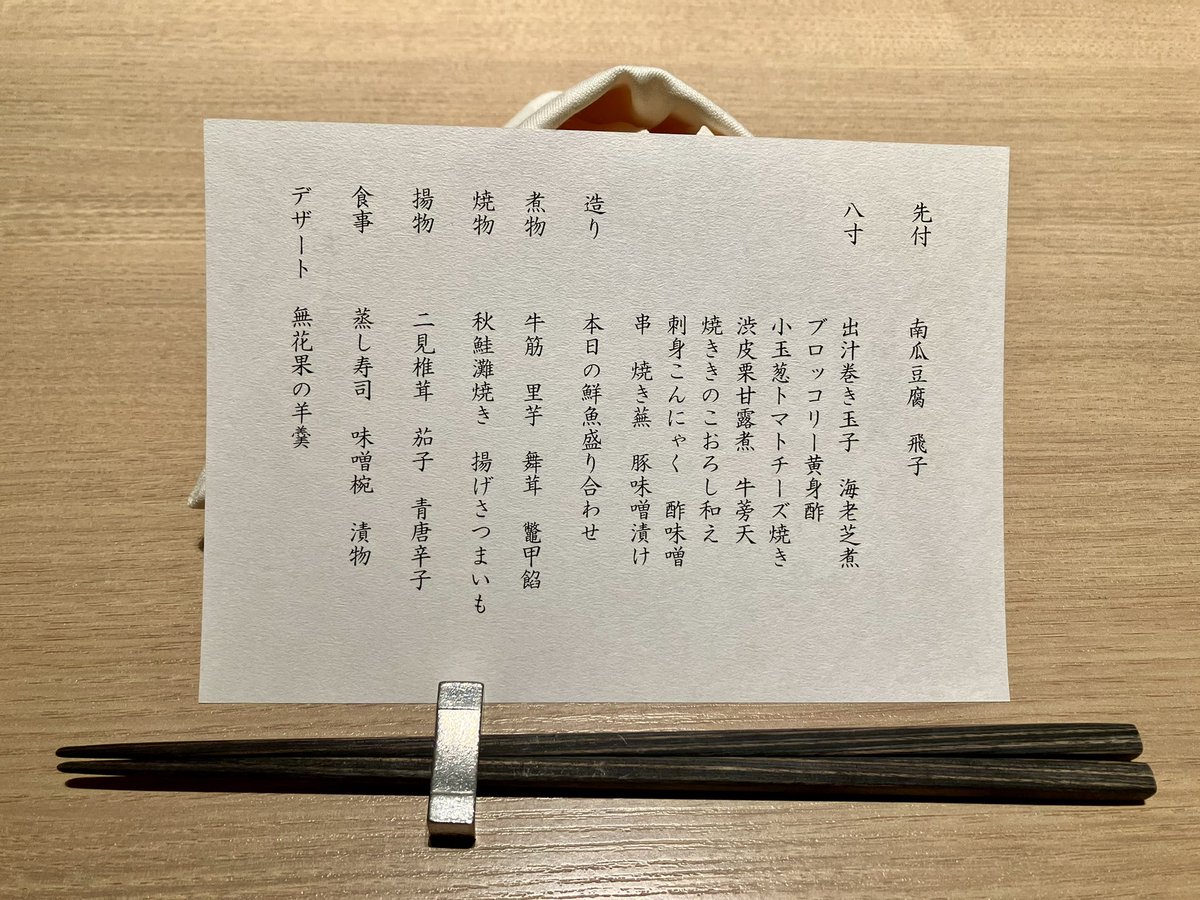 先付　南瓜豆腐　飛子
八寸　出汁巻き玉子　海老芝煮
ブロッコリー黄身酢
小玉葱トマトチーズ焼き
渋皮栗甘露煮　牛蒡天
焼ききのこおろし和え
刺身こんにゃく　酢味噌
串　焼き蕪　豚味噌漬け
造り　本日の鮮魚盛り合わせ
煮物　牛筋　里芋　舞茸　鼈甲餡
焼物　秋鮭灘焼き　揚げさつまいも
揚物　二見椎茸　茄子　青唐辛子
食事　蒸し寿司　味噌椀　漬物
デザート　無花果の羊羹